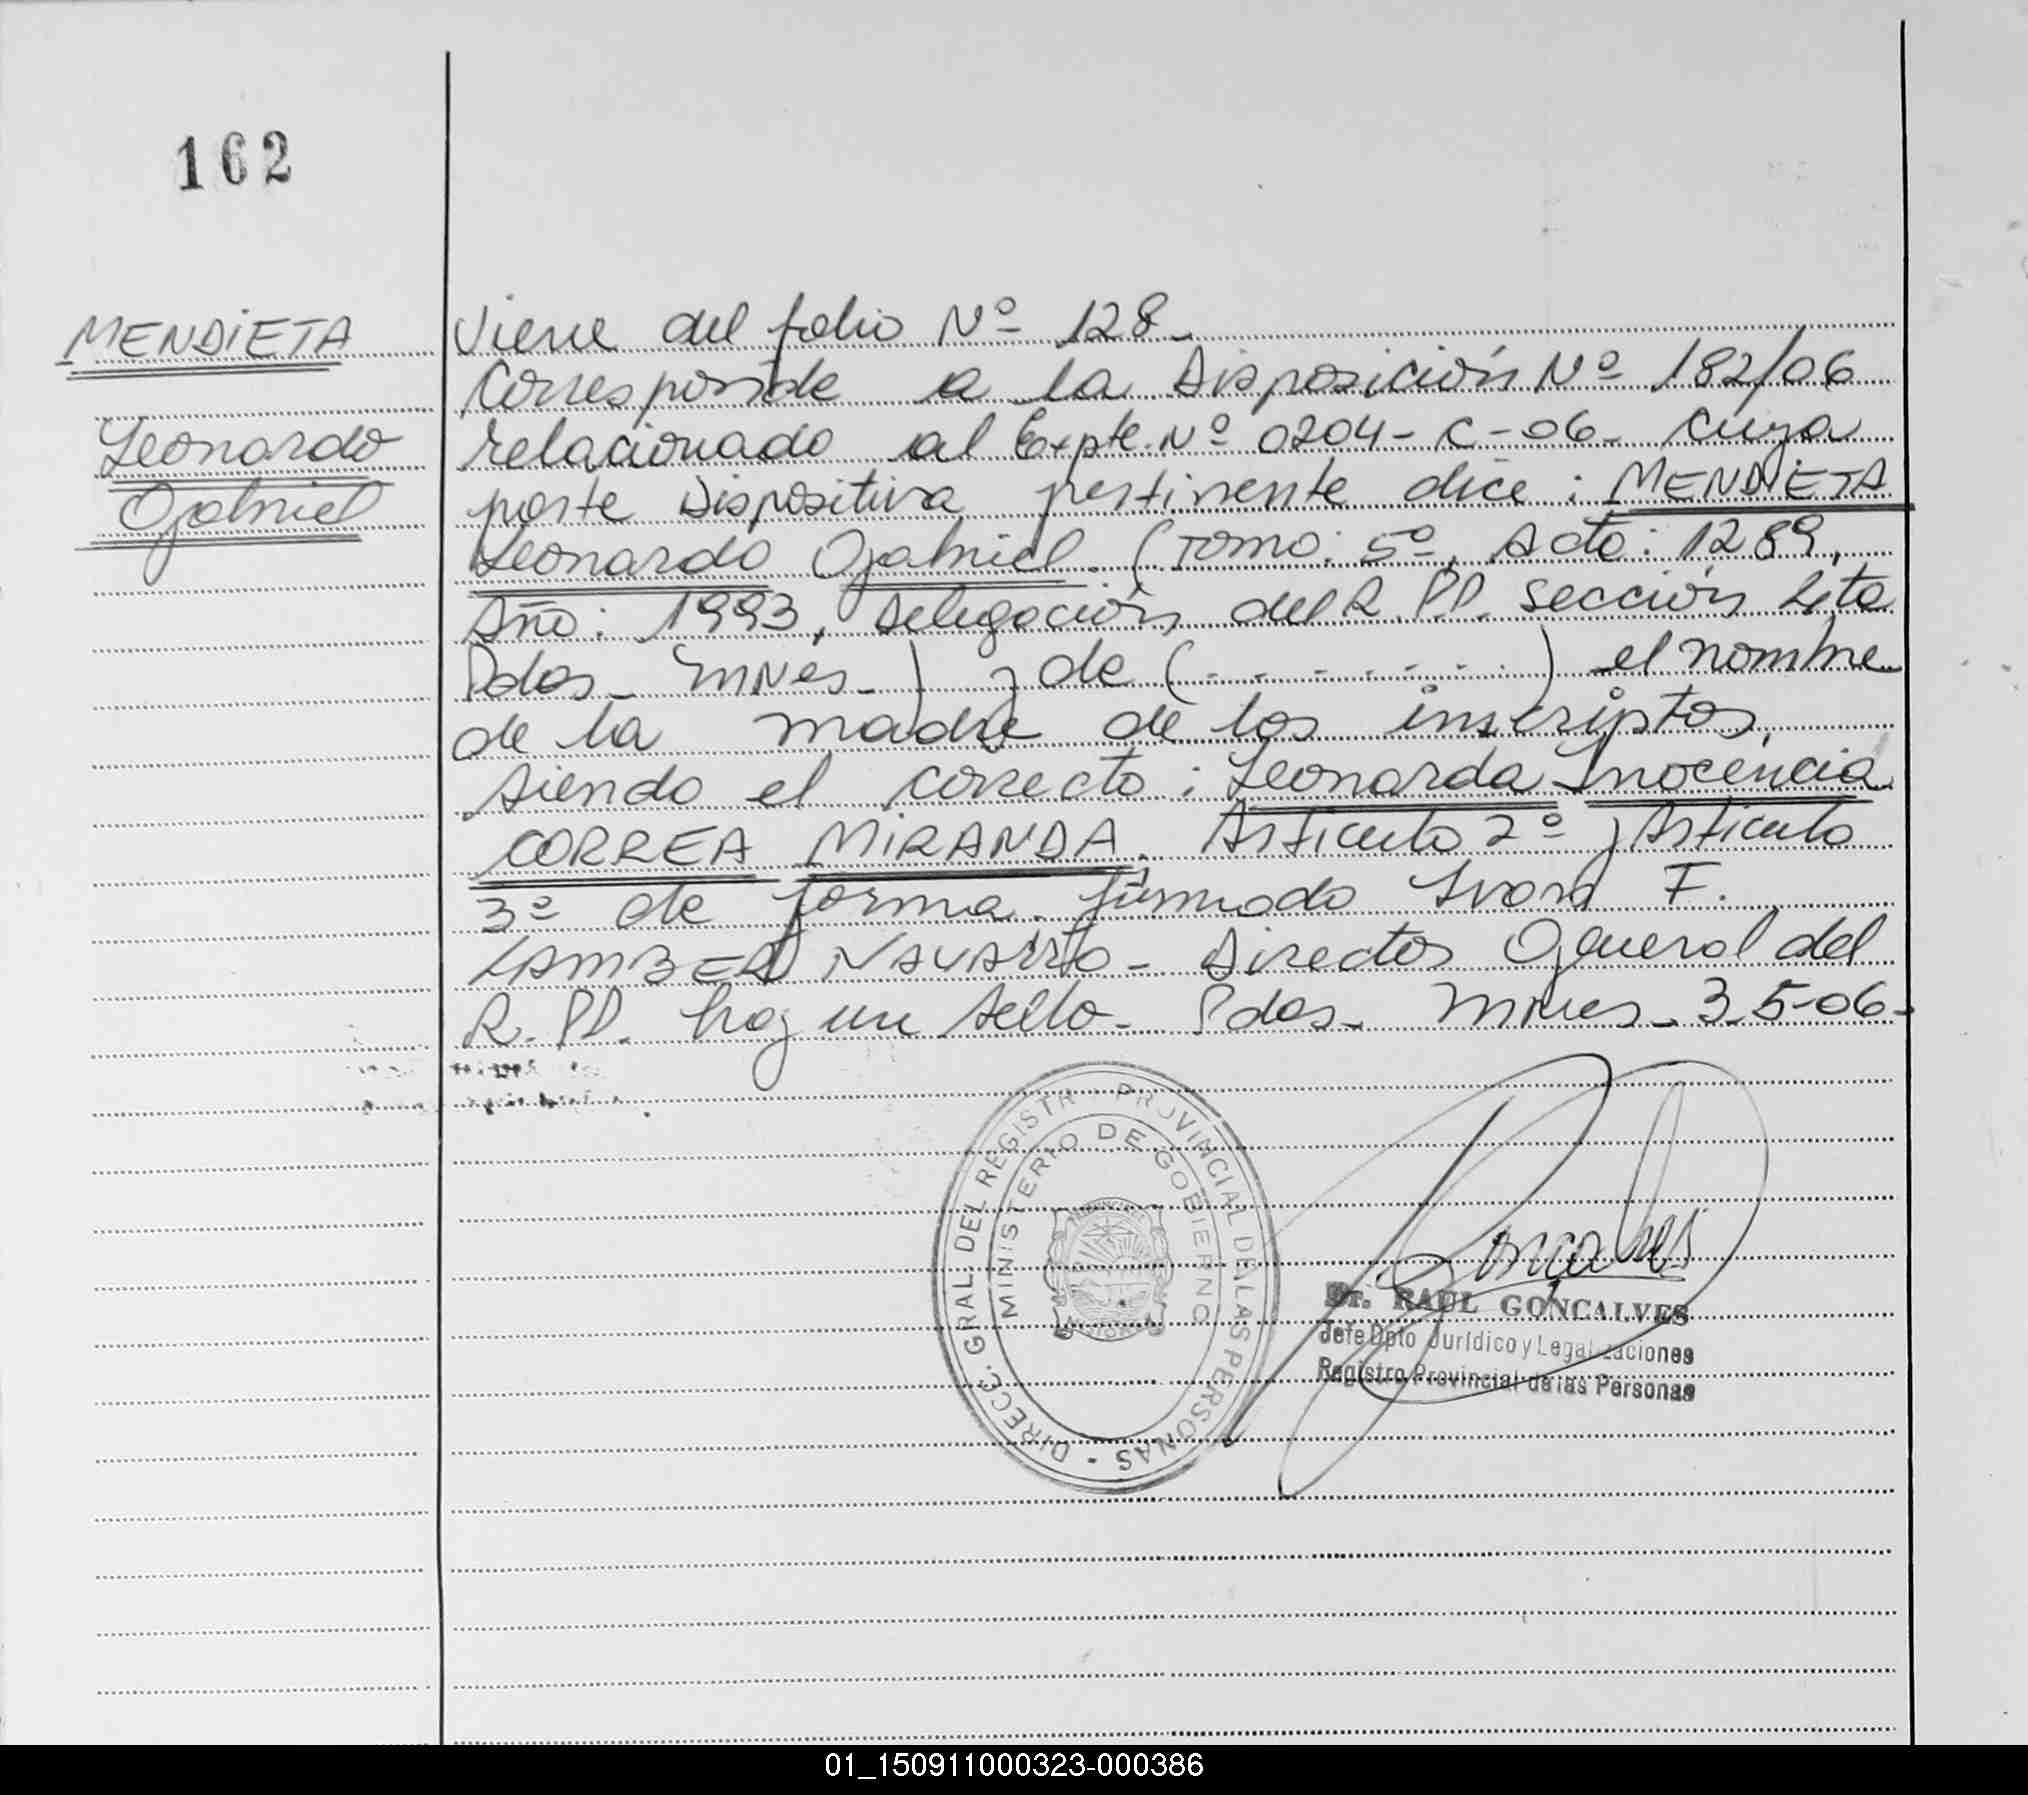 162
MENDIETA
Leonardo
Gabriel
Viene del folio Nº 128-
Corresponde a la Disposición Nº 182/06
relacionado al Expte. Nº 0204-C-06- cuya
parte Dispositiva pertinente dice: MENDIETA
Leonardo Gabriel. (Tomo: 5º, Acta: 1289,
Año: 1993, Delegación del R.PP. Sección 2da
Pdas- Mnes-) y de (- - - - - - -) el nombre
de la madre de los inscriptos,
siendo el correcto: Leonarda Inocencia
CORREA MIRANDA. Artículo 2º y Artículo
3º de forma. firmado Ivan F.
LAMBER Navarro- Director General del
R.PP. hay un sello- Pdas- Mnes- 3-5-06-
DIRECC. GRAL. DEL REGISTRO PROVINCIAL DE LAS PERSONAS
MINISTERIO DE GOBIERNO
Goncalves
Dr. RAUL GONÇALVES
Jefe Dpto Jurídico y Legalizaciones
Registro Provincial de las Personas
01_150911000323-000386